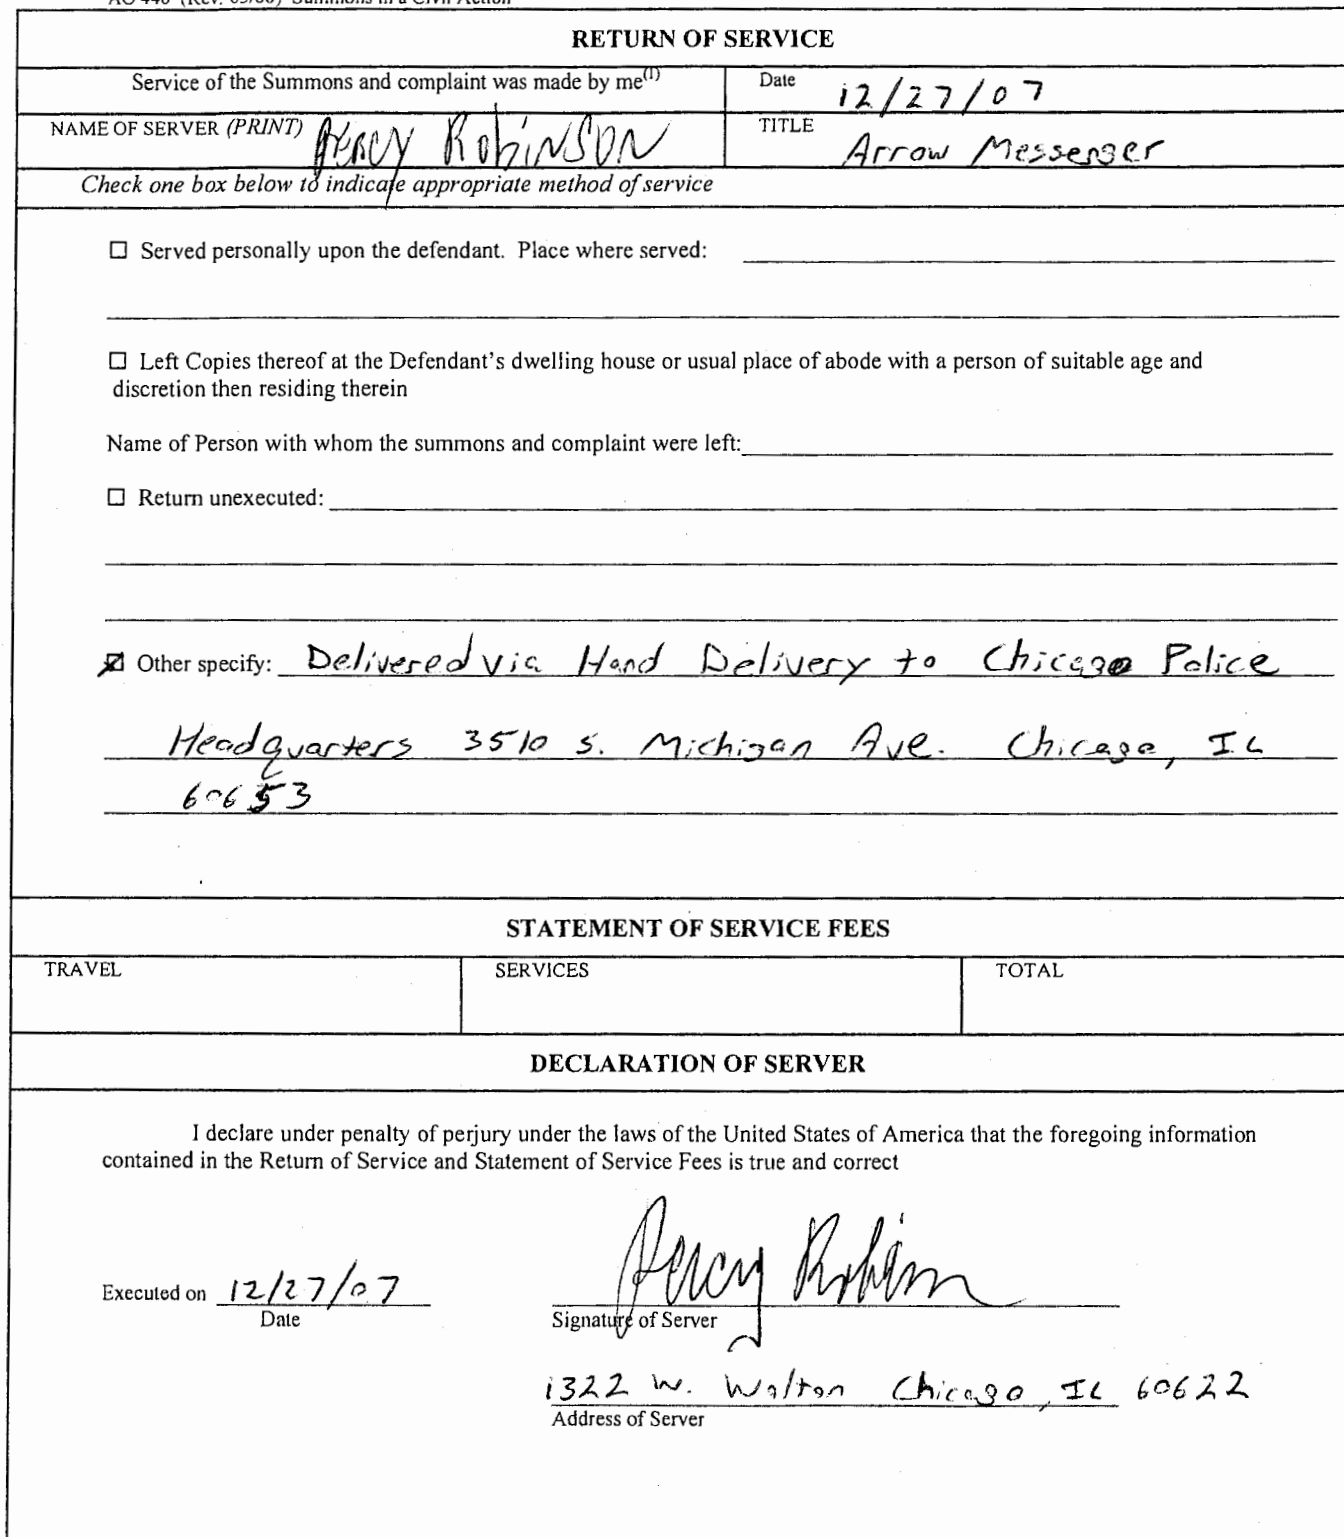 AO 440 (Rev. 05/00) Summons in a Civil Action
RETURN OF SERVICE
Service of the Summons and complaint was made by me(1)
Date 12/27/07
NAME OF SERVER (PRINT) Percy Robinson
TITLE Arrow Messenger
Check one box below to indicate appropriate method of service
☐ Served personally upon the defendant. Place where served:
☐ Left Copies thereof at the Defendant's dwelling house or usual place of abode with a person of suitable age and
discretion then residing therein
Name of Person with whom the summons and complaint were left:
☐ Return unexecuted:
☑ Other specify: Delivered via Hand Delivery to Chicago Police
Headquarters 3510 S. Michigan Ave. Chicago, IL
60653
STATEMENT OF SERVICE FEES
TRAVEL SERVICES TOTAL
DECLARATION OF SERVER
I declare under penalty of perjury under the laws of the United States of America that the foregoing information
contained in the Return of Service and Statement of Service Fees is true and correct
Executed on 12/27/07 Percy Robinson
Date Signature of Server
1322 W. Walton Chicago, IL 60622
Address of Server